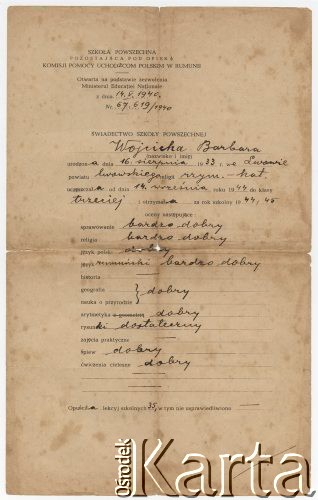 SZKOŁA POWSZECHNA
POZOSTAJĄCA POD OPIEKĄ
KOMISJI POMOCY UCHODŹCOM POLSKIM W RUMUNII
Otwarta na podstawie zezwolenia
Ministerul Educației Naționale
z dnia 14.V.1940,
Nr. 67.619/1940
ŚWIADECTWO SZKOŁY POWSZECHNEJ
Wojcicka Barbara
(nazwisko i imię)
urodzona dnia 16 sierpnia 1933 r. we Lwowie
powiatu lwowskiego religii rzym.-kat.
uczęszczała od dnia 14 września roku 1944 do klasy
trzeciej i otrzymała za rok szkolny 1944/45
oceny następujące
sprawowanie bardzo dobry
religia bardzo dobry
język polski dobry
język rumuński bardzo dobry
historia
geografia
nauka o przyrodzie } dobry
arytmetyka z geometrią dobry
rysunki dostateczny
zajęcia praktyczne
śpiew dobry
ćwiczenia cielesne dobry
Opuściła lekcyj szkolnych 35, w tym nie usprawiedliwiono
Ośrodek Karta